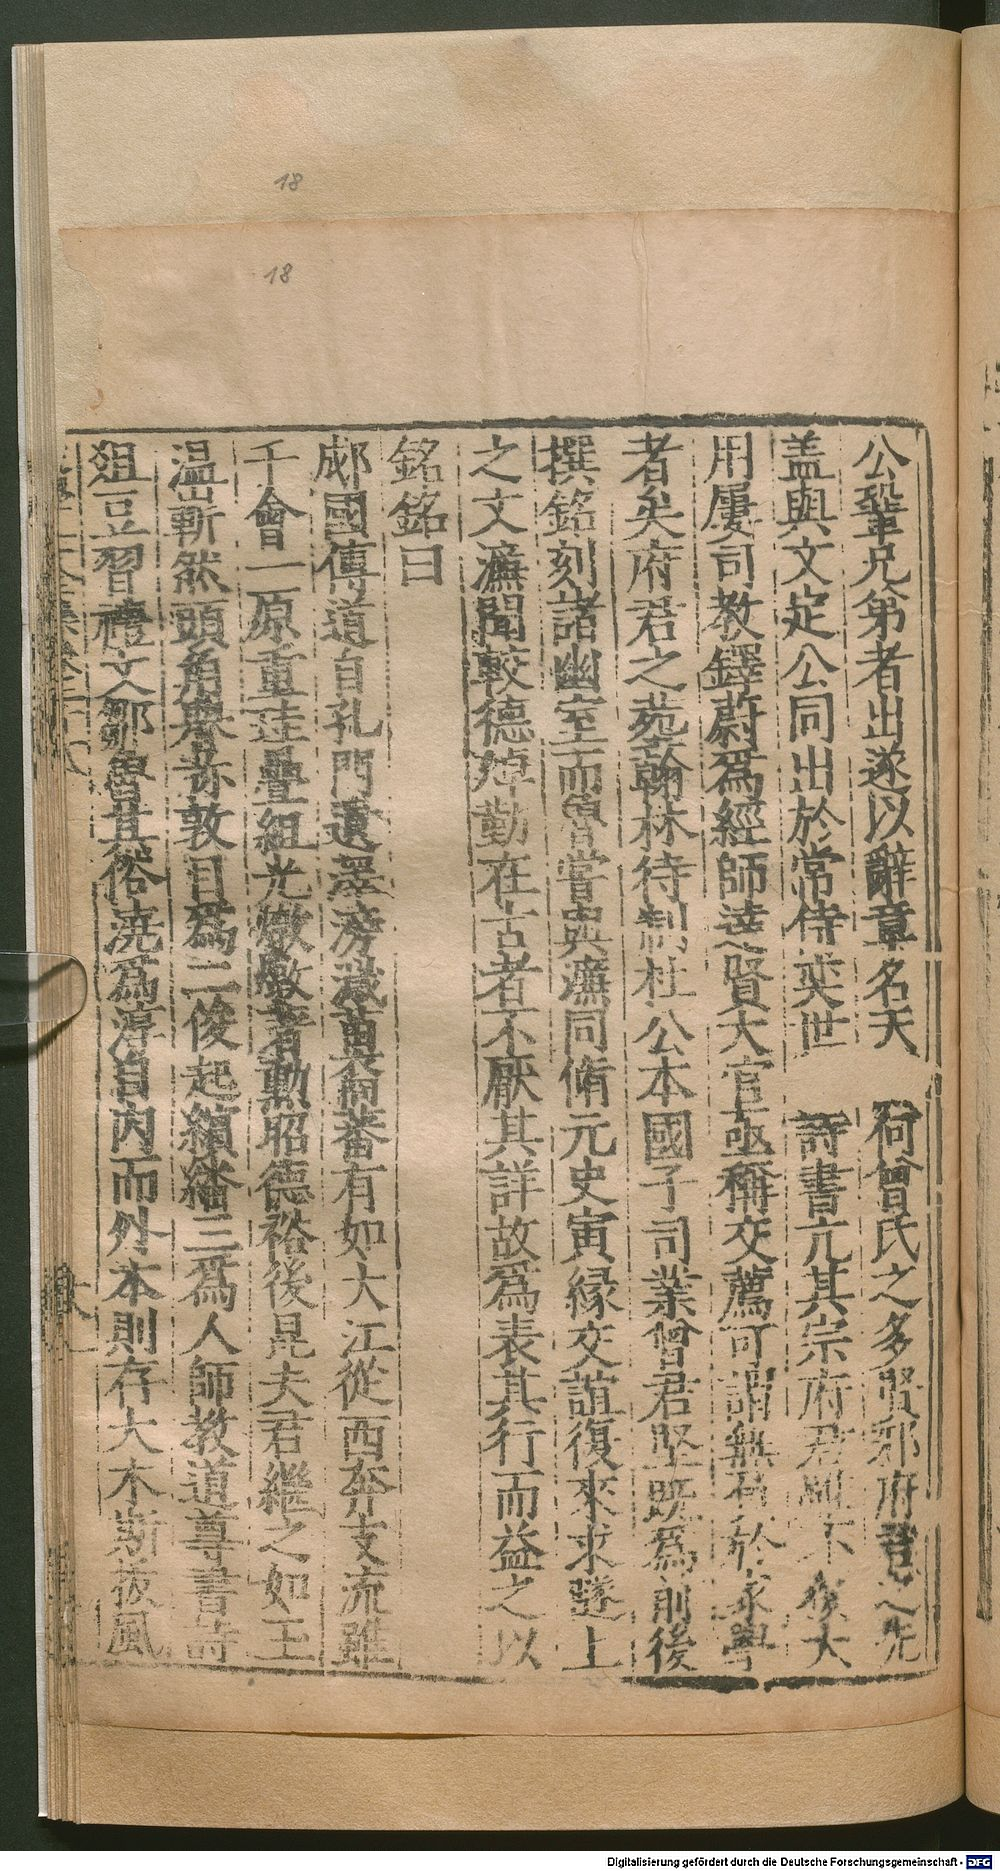 18
18
公鞏兄弟者出遂以辭章名天 何曾氏之多賢邪府君之先
盖與文定公同出於常侍奕世 詩書亢其宗府君 不 大
用屢司教鐸蔚爲經師逹賢大官亟稱交薦可謂無 於家學
者矣府君之苑翰林待制杜公本國子司業曾君堅旣爲前後
撰銘刻諸幽室而魯嘗與濂同脩元史寅縁交誼復來求隧上
之文濂聞較德焯勤在古者不厭其詳故爲表其行而益之以
銘銘曰
郕國傳道自孔門遺澤滂濊 蕃有如大江從西奔支流雖
千會一原重珪疊組光燉燉著勳昭德裕後昆夫君繼之如玉
温嶄然頭角 敦目爲二俊起繽繙三爲人師教道尊書詩
俎豆習禮文鄒魯其俗澆爲淳自内而外本則存大木斯拔風
Digitalisierung gefördert durch die Deutsche Forschungsgemeinschaft - DFG